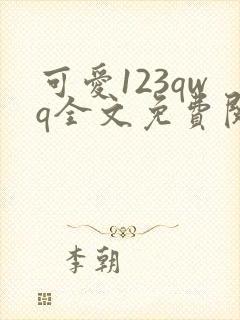 可愛123qw
q全文免費閱
李朝